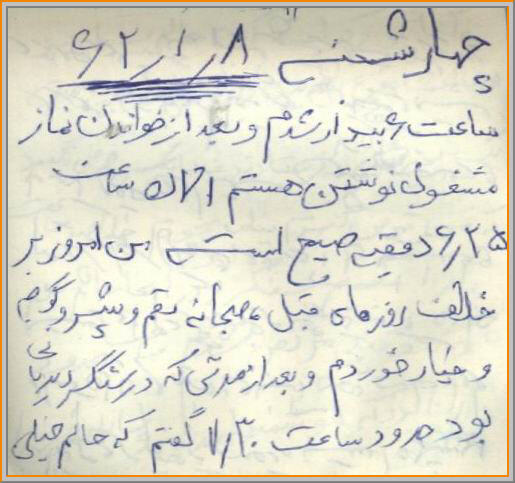 چهارشنبه ۶۲/۱/۸
ساعت ۶ بیدار شدم و بعد از خواندن نماز
مشغول نوشتن هستم الان ساعت
۶/۲۵ دقیقه صبح است من امروز بر
خلاف روزهای قبل، صبحانه تخم و پنیر و گوجه
و خیار خوردم و بعد از مدتی که در سنگر
بود حدود ساعت ۷/۳۰ گفتم که حالم خیلی